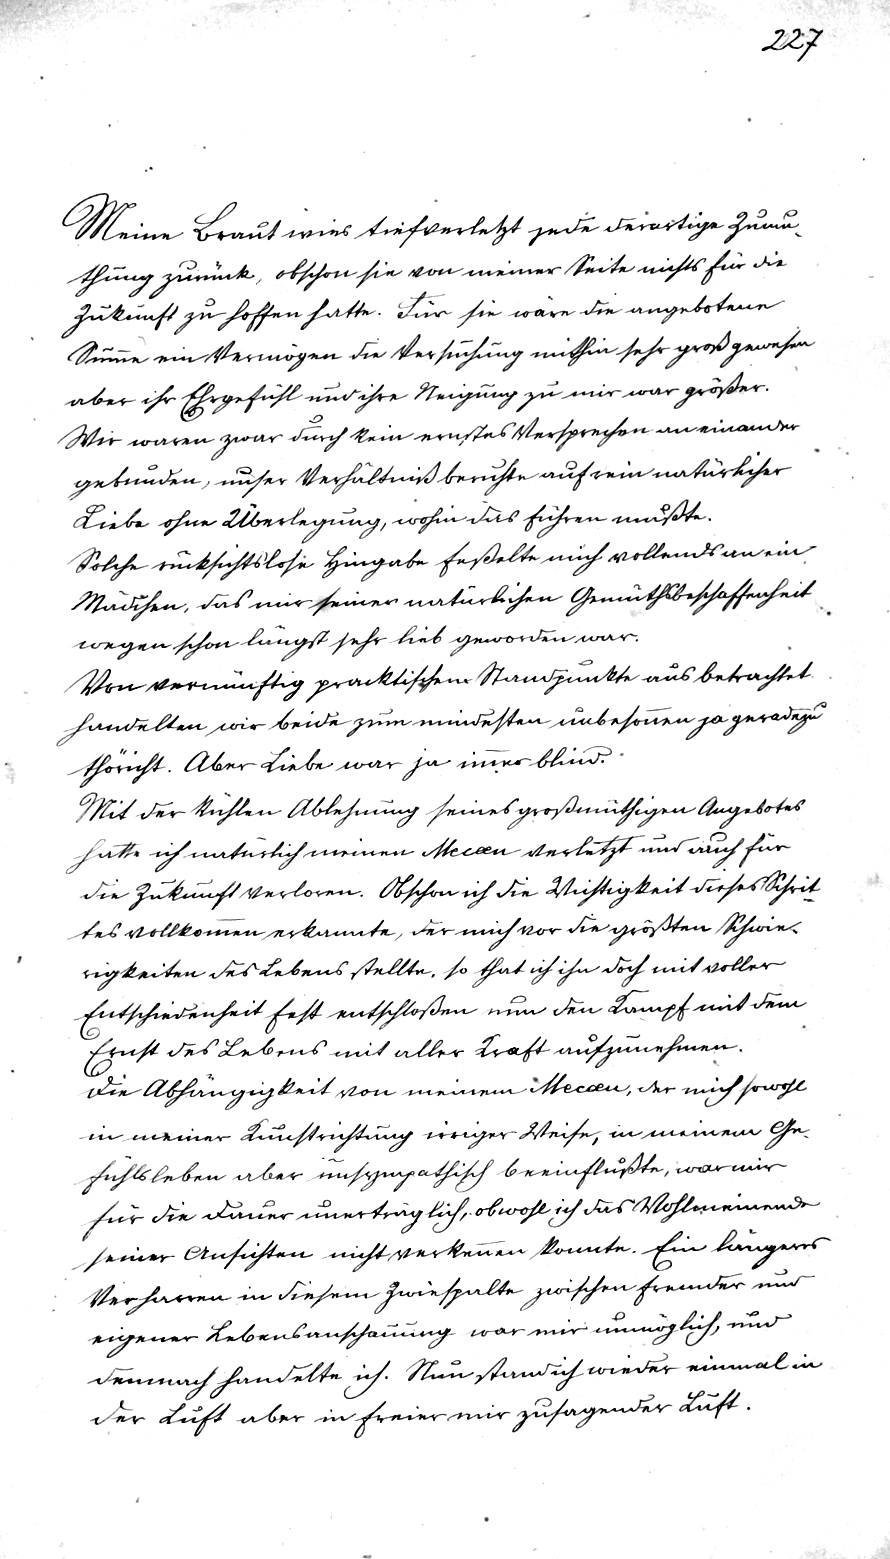 227
Meine Braut wies tiefverletzt jede derartige Zumu-
thung zurück, obschon sie von meiner Seite nichts für die
Zukunft zu hoffen hatte. Für sie wäre die angebotene
Sum̄e ein Vermögen die Versuchung mithin sehr groß gewesen
aber ihr Ehrgefühl und ihre Neigung zu mir war größer.
Wir waren zwar durch kein ernstes Versprechen an einander
gebunden, unser Verhältniß beruhte auf rein natürlicher
Liebe ohne Überlegung, wohin das führen mußte.
Solche rücksichtslose Hingabe feßelte mich vollends an ein
Mädchen, das mir seiner natürlichen Gemüthsbeschaffenheit
wegen schon längst sehr lieb geworden war.
Von vernünftig pracktischem Standpunkte aus betrachtet
handelten wir beide zum mindesten unbeson̄en ja geradezu
thöricht. Aber Liebe war ja im̄er blind.
Mit der kühlen Ablehnung seines großmüthigen Angebotes
hatte ich natürlich meinen Mecæn verletzt und auch für
die Zukunft verloren. Obschon ich die Wichtigkeit dieses Schrit-
tes vollkom̄en erkannte, der mich vor die größten Schwie-
rigkeiten des Lebens stellte, so that ich ihn doch mit voller
Entschiedenheit fest entschloßen nun den Kampf mit dem
Ernst des Lebens mit aller Kraft aufzunehmen.
Die Abhängigkeit von meinem Mecæn, der mich sowohl
in meiner Kunstrichtung irriger Weise, in meinem Ge-
fühlsleben aber unsympathisch beeinflußte, war mir
für die Dauer unerträglich, obwohl ich das Wohlmeinende
seiner Ansichten nicht verken̄en konnte. Ein längeres
Verharren in diesem Zwiespalte zwischen fremder und
eigener Lebensanschauung war mir unmöglich, und
demnach handelte ich. Nun stand ich wieder einmal in
der Luft aber in freier mir zusagender Luft.